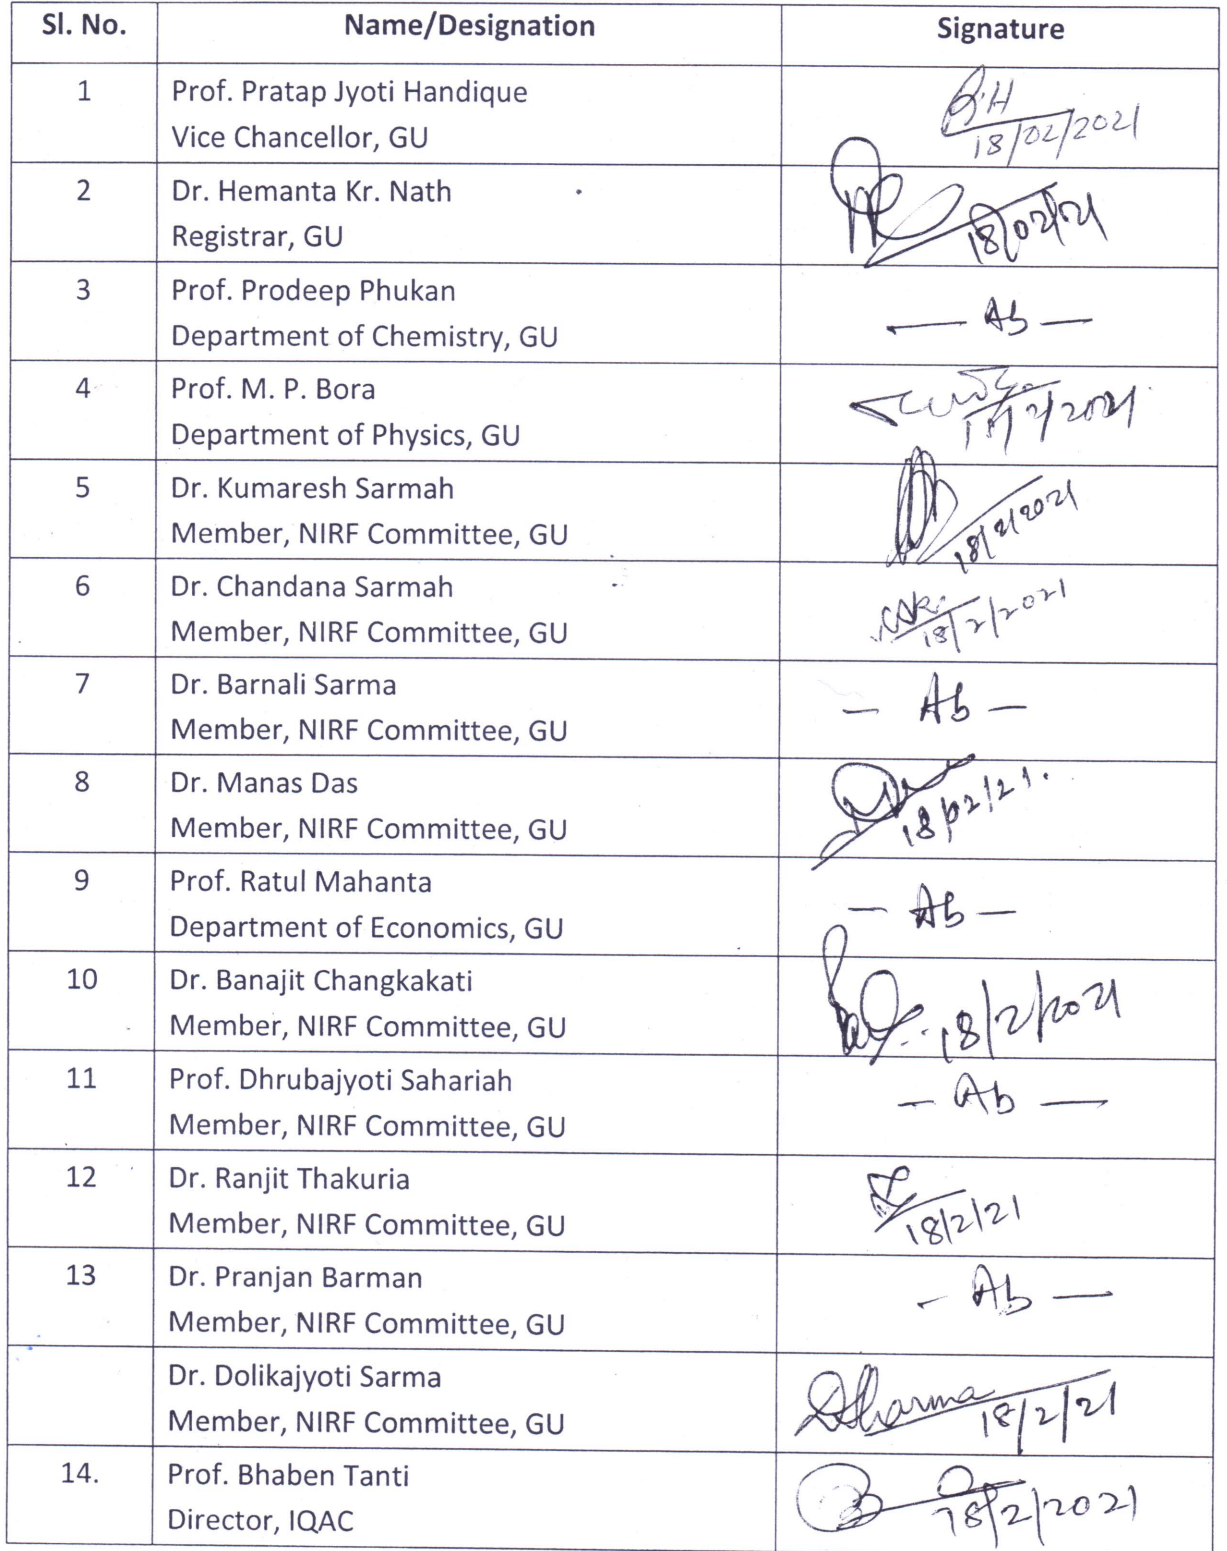 Sl. No. Name/Designation Signature
1 Prof. Pratap Jyoti Handique
Vice Chancellor, GU
18/02/2021
2 Dr. Hemanta Kr. Nath
Registrar, GU
18/02/21
3 Prof. Prodeep Phukan
Department of Chemistry, GU
— Ab —
4 Prof. M. P. Bora
Department of Physics, GU
18/2/2021
5 Dr. Kumaresh Sarmah
Member, NIRF Committee, GU
18/2/2021
6 Dr. Chandana Sarmah
Member, NIRF Committee, GU
18/2/2021
7 Dr. Barnali Sarma
Member, NIRF Committee, GU
— Ab —
8 Dr. Manas Das
Member, NIRF Committee, GU
18/02/21.
9 Prof. Ratul Mahanta
Department of Economics, GU
— Ab —
10 Dr. Banajit Changkakati
Member, NIRF Committee, GU
18/2/2021
11 Prof. Dhrubajyoti Sahariah
Member, NIRF Committee, GU
— Ab —
12 Dr. Ranjit Thakuria
Member, NIRF Committee, GU
18/2/21
13 Dr. Pranjan Barman
Member, NIRF Committee, GU
- Ab —
Dr. Dolikajyoti Sarma
Member, NIRF Committee, GU
DSharma
18/2/21
14. Prof. Bhaben Tanti
Director, IQAC
18/2/2021